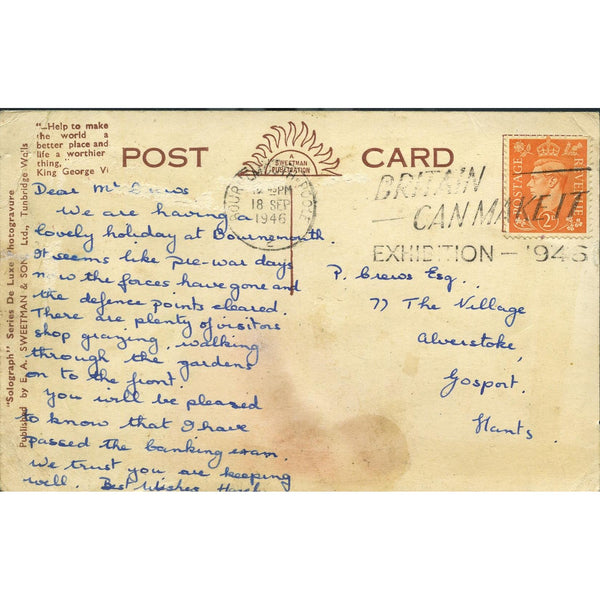 "—Help to make
the world a
better place and
life a worthier
thing,"
King George VI
POST CARD
A
SWEETMAN
PRODUCTION
18 SEP
1946
2
BRITAIN
CAN MAKE IT
EXHIBITION — 1946
POSTAGE
REVENUE
"Solograph" Series De Luxe Photogravure
Published by E. A. SWEETMAN & SON, Ltd., Tunbridge Wells
Dear Mr Crews
We are having a
lovely holiday at Bournemouth.
It seems like pre-war days
now the forces have gone and
the defence points cleared.
There are plenty of visitors
shop grazing, walking
through the gardens
on to the front.
You will be pleased
to know that I have
passed the banking exam.
We trust you are keeping
well. Best Wishes
P. Crews Esq.
77 The Village
Alverstoke,
Gosport.
Hants.